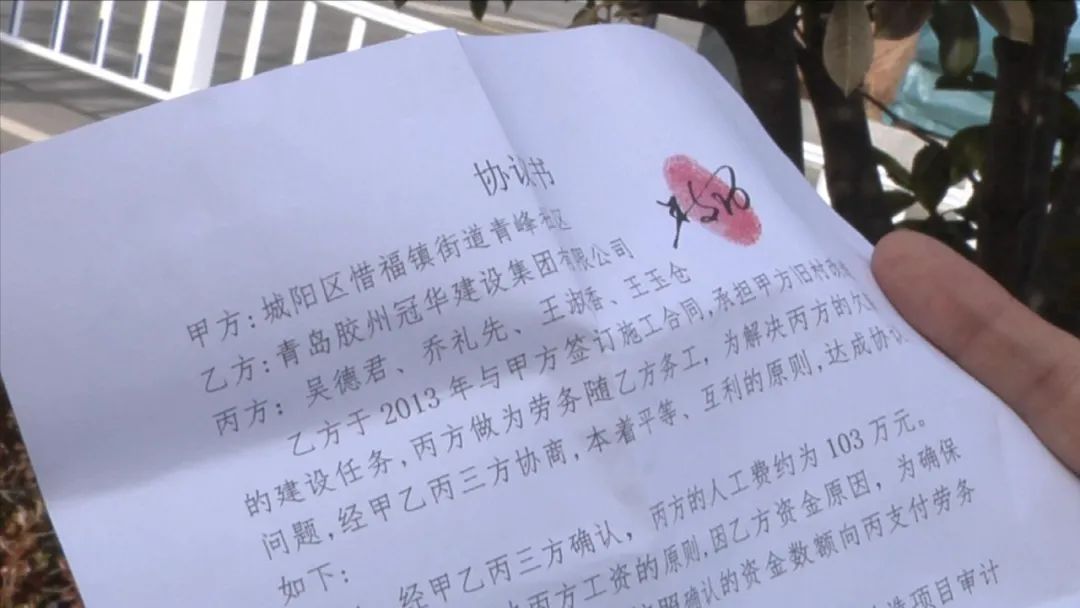 协议书
甲方：城阳区惜福镇街道青峰社区
乙方：青岛胶州冠华建设集团有限公司
丙方：吴德君、乔礼先、王淑香、王玉仓
乙方于 2013 年与甲方签订施工合同，承担甲方旧村改
的建设任务，丙方做为劳务随乙方务工，为解决丙方的欠
问题，经甲乙丙三方协商，本着平等、互利的原则，达成协议
如下：
经甲乙丙三方确认，丙方的人工费约为 103 万元。
丙方工资的原则，因乙方资金原因，为确保
确认的资金数额向丙支付劳务
项目审计